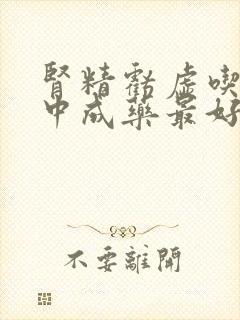 腎精虧虛喫
中成藥最好
不要離開